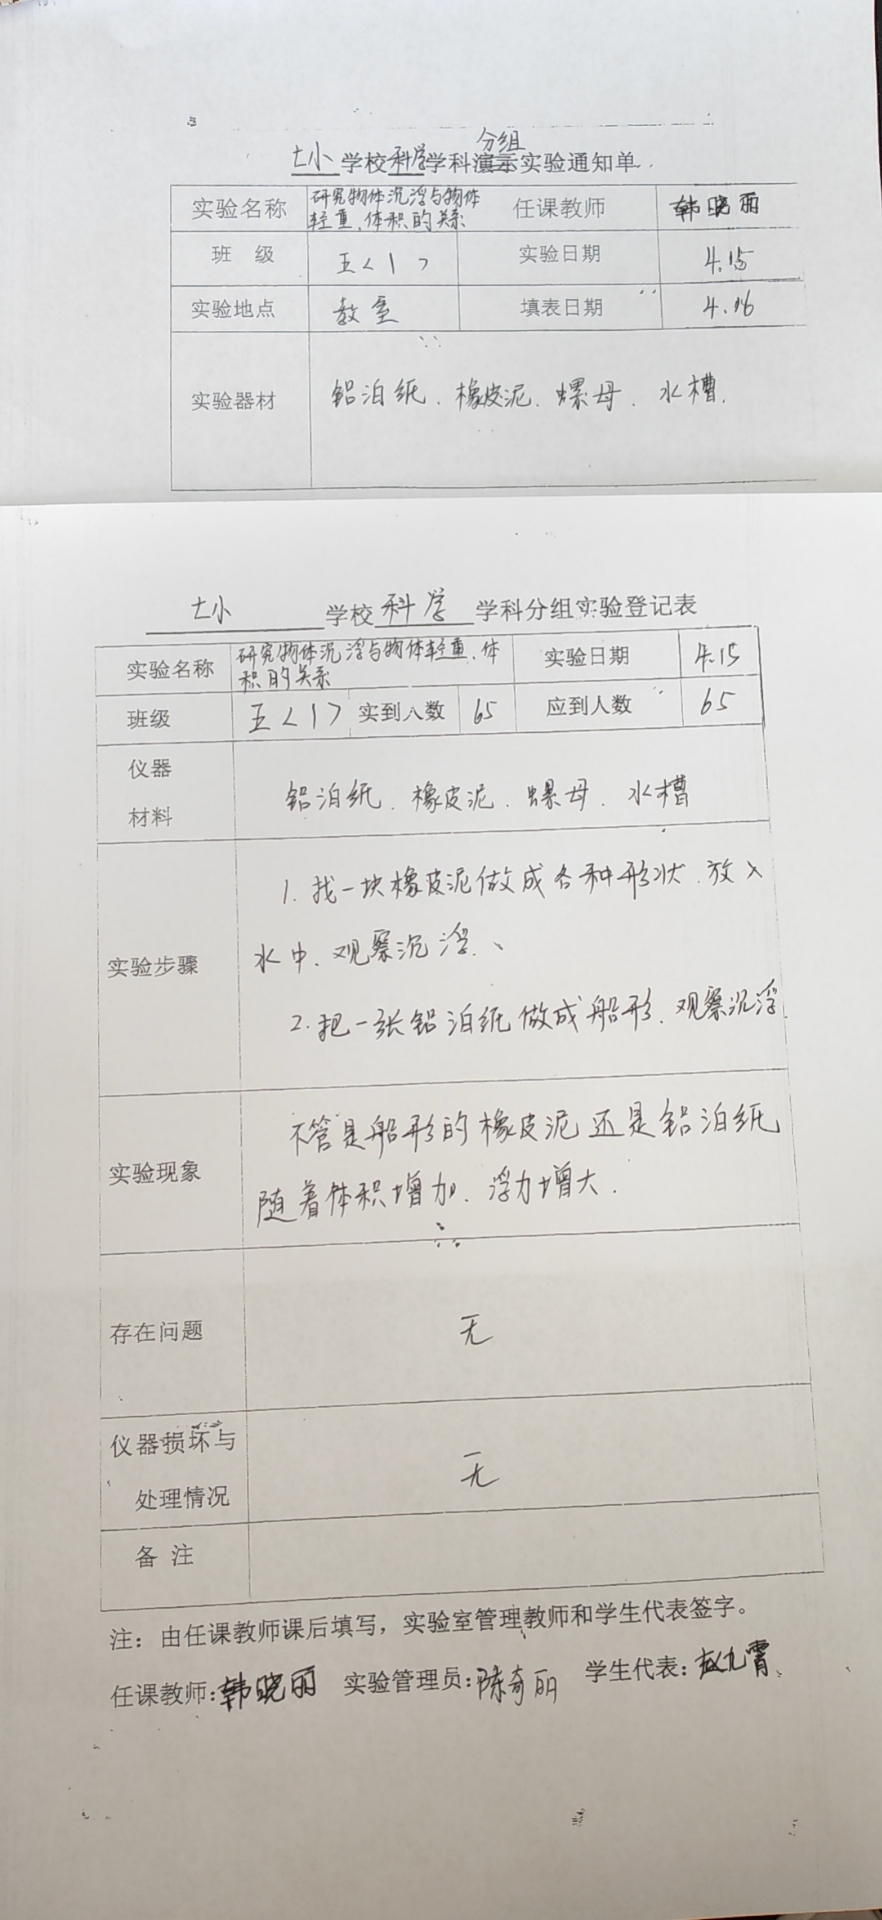 分组
七小学校科学学科演示实验通知单
实验名称 研究物体沉浮与物体轻重、体积的关系 任课教师 韩晓丽
班 级 五<1> 实验日期 4.15
实验地点 教室 填表日期 4.16
实验器材 铝泊纸、橡皮泥、螺母、水槽.
七小 学校 科学 学科分组实验登记表
实验名称 研究物体沉浮与物体轻重、体积的关系 实验日期 4.15
班级 五<1> 实到人数 65 应到人数 65
仪器
材料
铝泊纸、橡皮泥、螺母、水槽
实验步骤
1.找一块橡皮泥做成各种形状.放入
水中、观察沉浮、
2.把一张铝泊纸做成船形、观察沉浮.
实验现象
不管是船形的橡皮泥还是铝泊纸
随着体积增加、浮力增大.
存在问题 无
仪器损坏与
处理情况
无
备 注
注：由任课教师课后填写，实验室管理教师和学生代表签字。
任课教师:韩晓丽 实验管理员:陈奇丽 学生代表:赵九霄